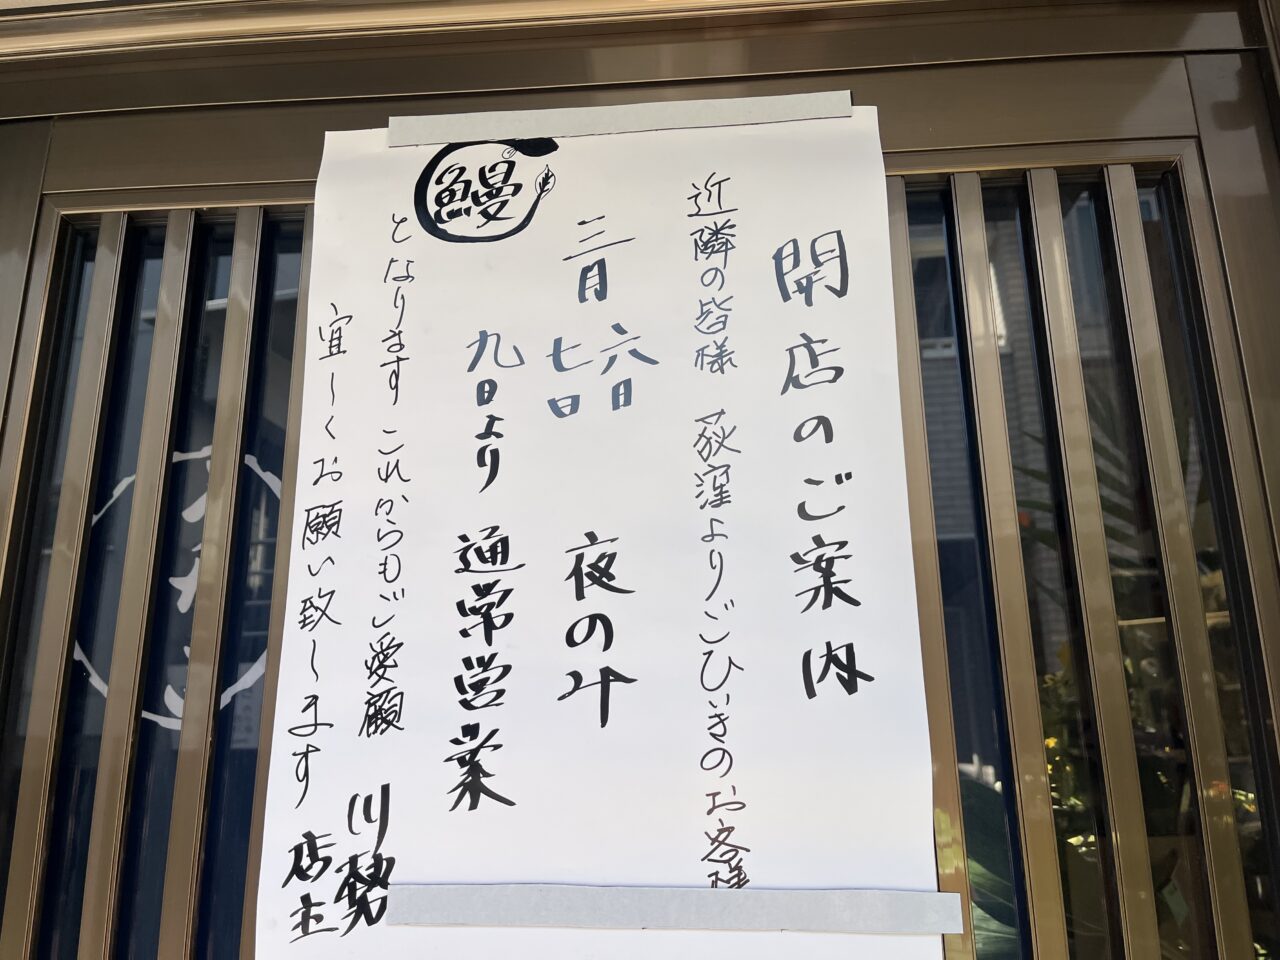 開店のご案内
近隣の皆様 荻窪よりごひいきのお客様
三月 六日
七日 夜のみ
九日より 通常営業
鰻
となります これからもご愛顧
宜しくお願い致します
川勢
店主